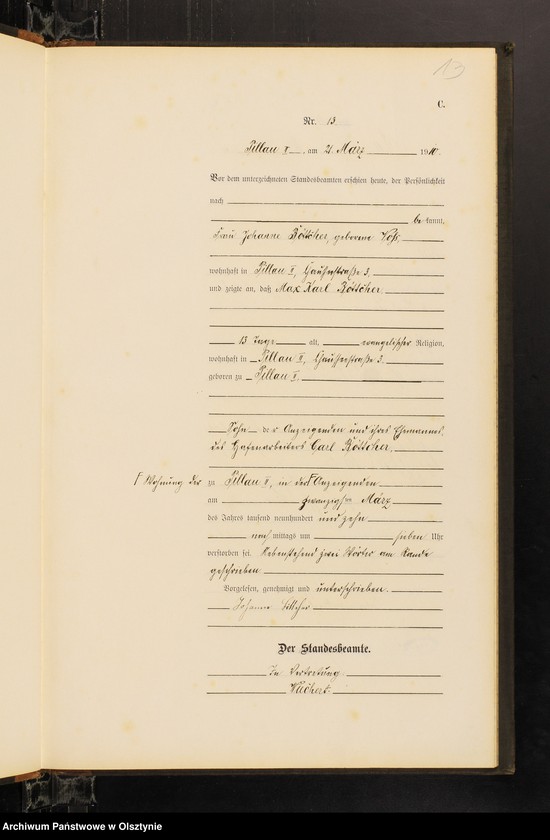 13
C.
Nr. 13
Pillau II, am 21. März 1910.
Vor dem unterzeichneten Standesbeamten erschien heute, der Persönlichkeit
nach
be kannt,
Frau Johanne Böttcher, geborene Voß,
wohnhaft in Pillau II, 3.
und zeigte an, daß Max Karl Böttcher,
13 Tage alt, evangelischer Religion,
wohnhaft in Pillau II, 3.
geboren zu Pillau II,
Sohn der Anzeigenden und ihres Ehemannes,
des Hafenarbeiters Carl Böttcher,
Wohnung der
zu Pillau II, in der Anzeigenden
am zwanzigsten März
des Jahres tausend neunhundert und zehn
nach mittags um sieben Uhr
verstorben sei. Nebenstehend zwei Wörter am Rande
geschrieben.
Vorgelesen, genehmigt und unterschrieben.
Johanne Böttcher
Der Standesbeamte.
In Vertretung
Archiwum Państwowe w Olsztynie